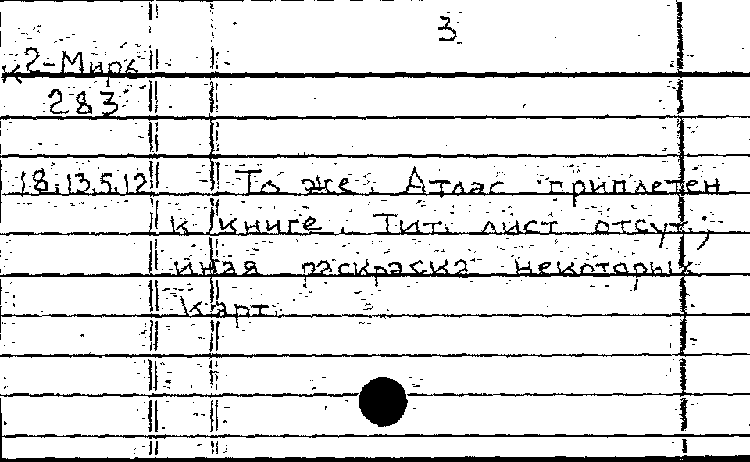 3
К2-Мир6
283
18.13.5.12 То же. Атлас приплетен
к книге. Тит. лист отсут.;
иная раскраска некоторых
карт.